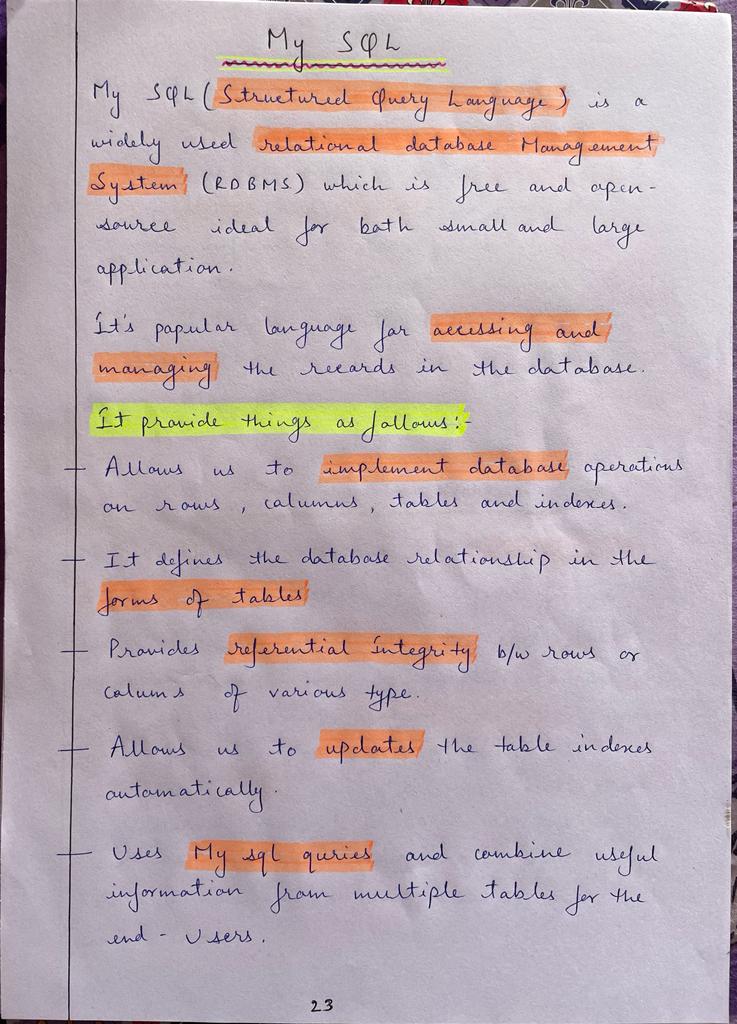 My SQL
My SQL (Structured Query Language) is a
widely used relational database Management
System (RDBMS) which is free and open-
source ideal for both small and large
application.
It's popular language for accessing and
managing the records in the database.
It provide things as follows:-
Allows us to implement database operations
on rows, columns, tables and indexes.
It defines the database relationship in the
forms of tables
Provides referential Integrity b/w rows or
colums of various type.
Allows us to updates the table indexes
automatically.
Uses My sql quries and combine useful
information from multiple tables for the
end - Users.
23